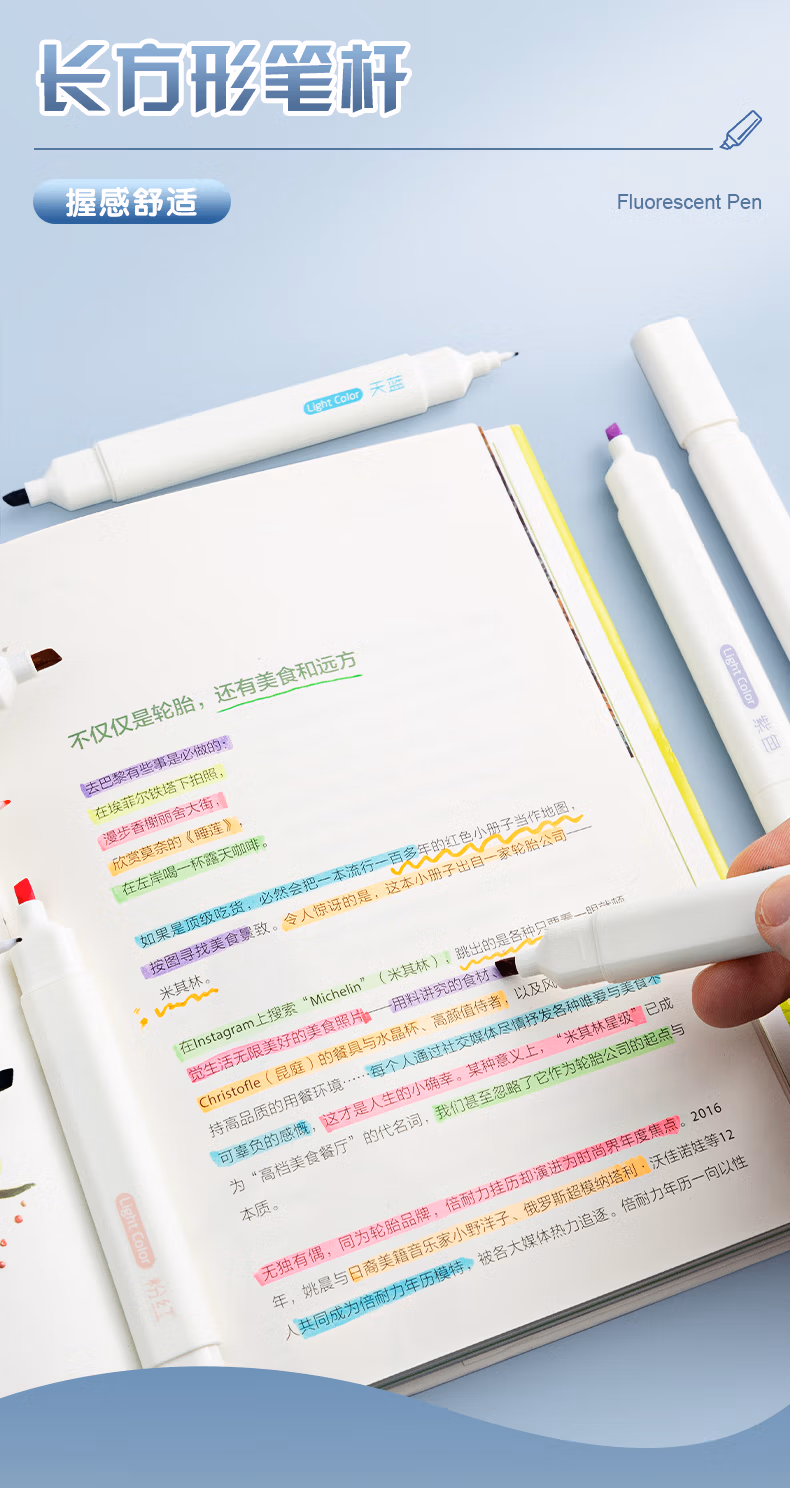 长方形笔杆
握感舒适
Fluorescent Pen
Light Color 天蓝
Light Color 紫色
不仅仅是轮胎，还有美食和远方
去巴黎有些事是必做的：
在埃菲尔铁塔下拍照，
漫步香榭丽舍大街，
欣赏莫奈的《睡莲》，
在左岸喝一杯露天咖啡。
如果是顶级吃货，必然会把一本流行一百多年的红色小册子当作地图，
按图寻找美食景致。令人惊讶的是，这本小册子出自一家轮胎公司——
米其林。
在Instagram上搜索“Michelin”（米其林），跳出的是各种只要看一眼就顿
觉生活无限美好的美食照片——用料讲究的食材、
Christofle（昆庭）的餐具与水晶杯、高颜值侍者，以及风
持高品质的用餐环境……每个人通过社交媒体尽情抒发各种唯爱与美食不
可辜负的感慨，这才是人生的小确幸。某种意义上，“米其林星级”已成
为“高档美食餐厅”的代名词，我们甚至忽略了它作为轮胎公司的起点与
本质。
无独有偶，同为轮胎品牌，倍耐力挂历却演进为时尚界年度焦点。2016
年，姚晨与日裔美籍音乐家小野洋子、俄罗斯超模纳塔利·沃佳诺娃等12
人共同成为倍耐力年历模特，被各大媒体热力追逐。倍耐力年历一向以性
Light Color 粉红